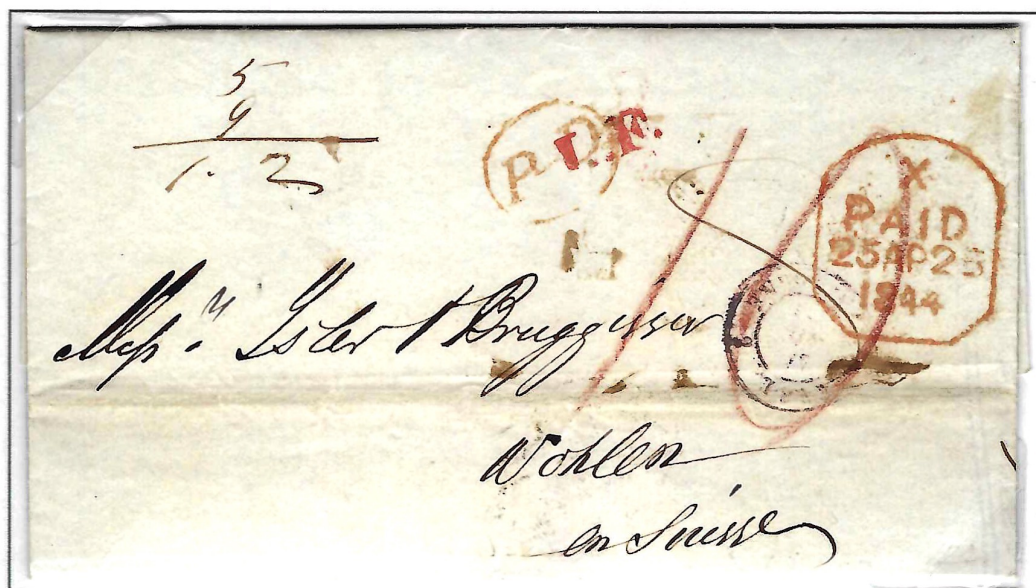 5
9
1. 2
P.D
L.F.
X
PAID
25 AP 25
1844
1/0
Mess.rs Isler & Bruggisser
Wohlen
en Suisse